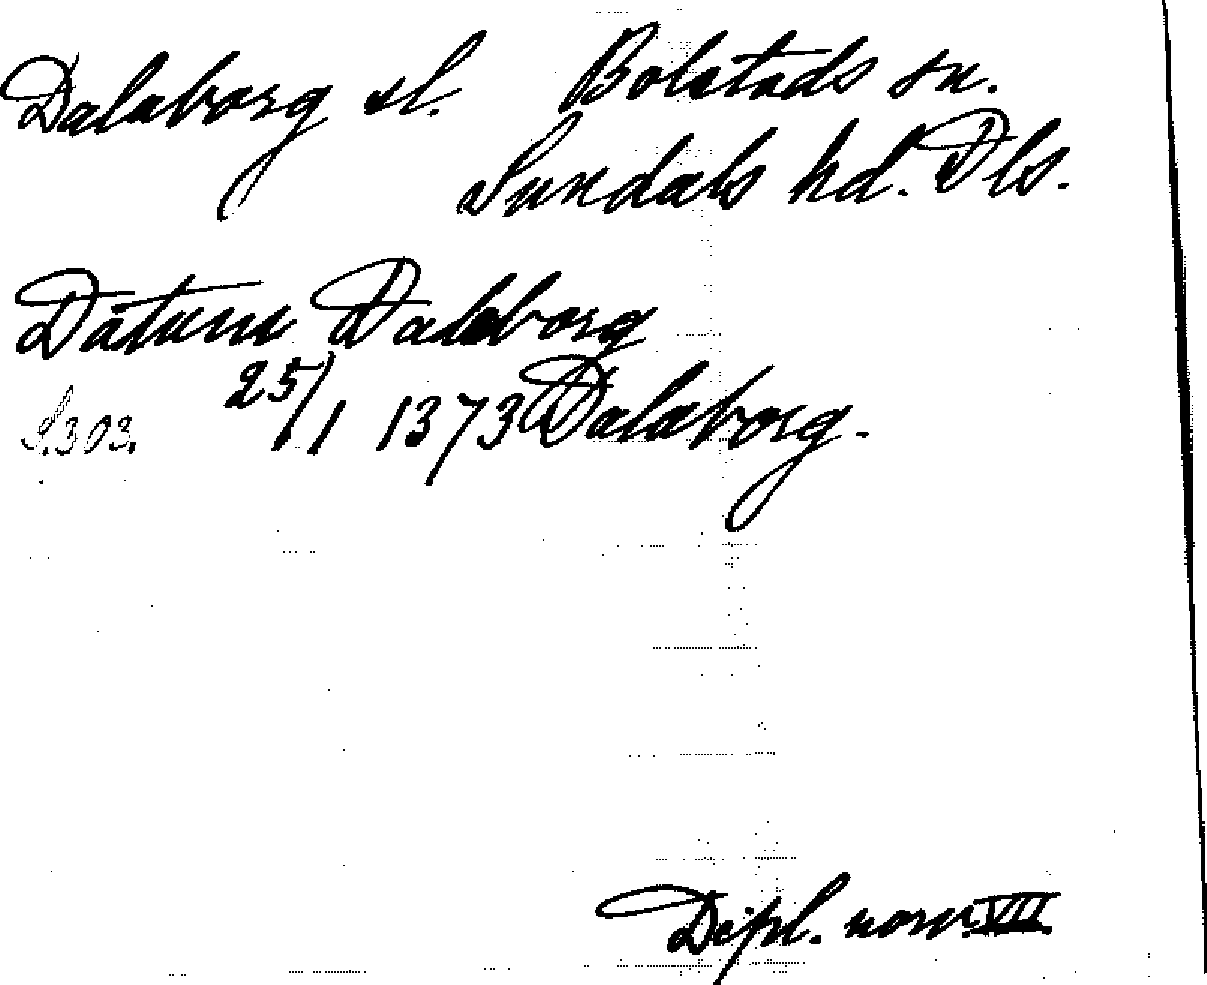 Dalaborg sl. Bolstads sn.
Sundals hd. Dls.
Datum Daleborg
S.303. 25/1 1373 Dalaborg.
Dipl. norv. VII.